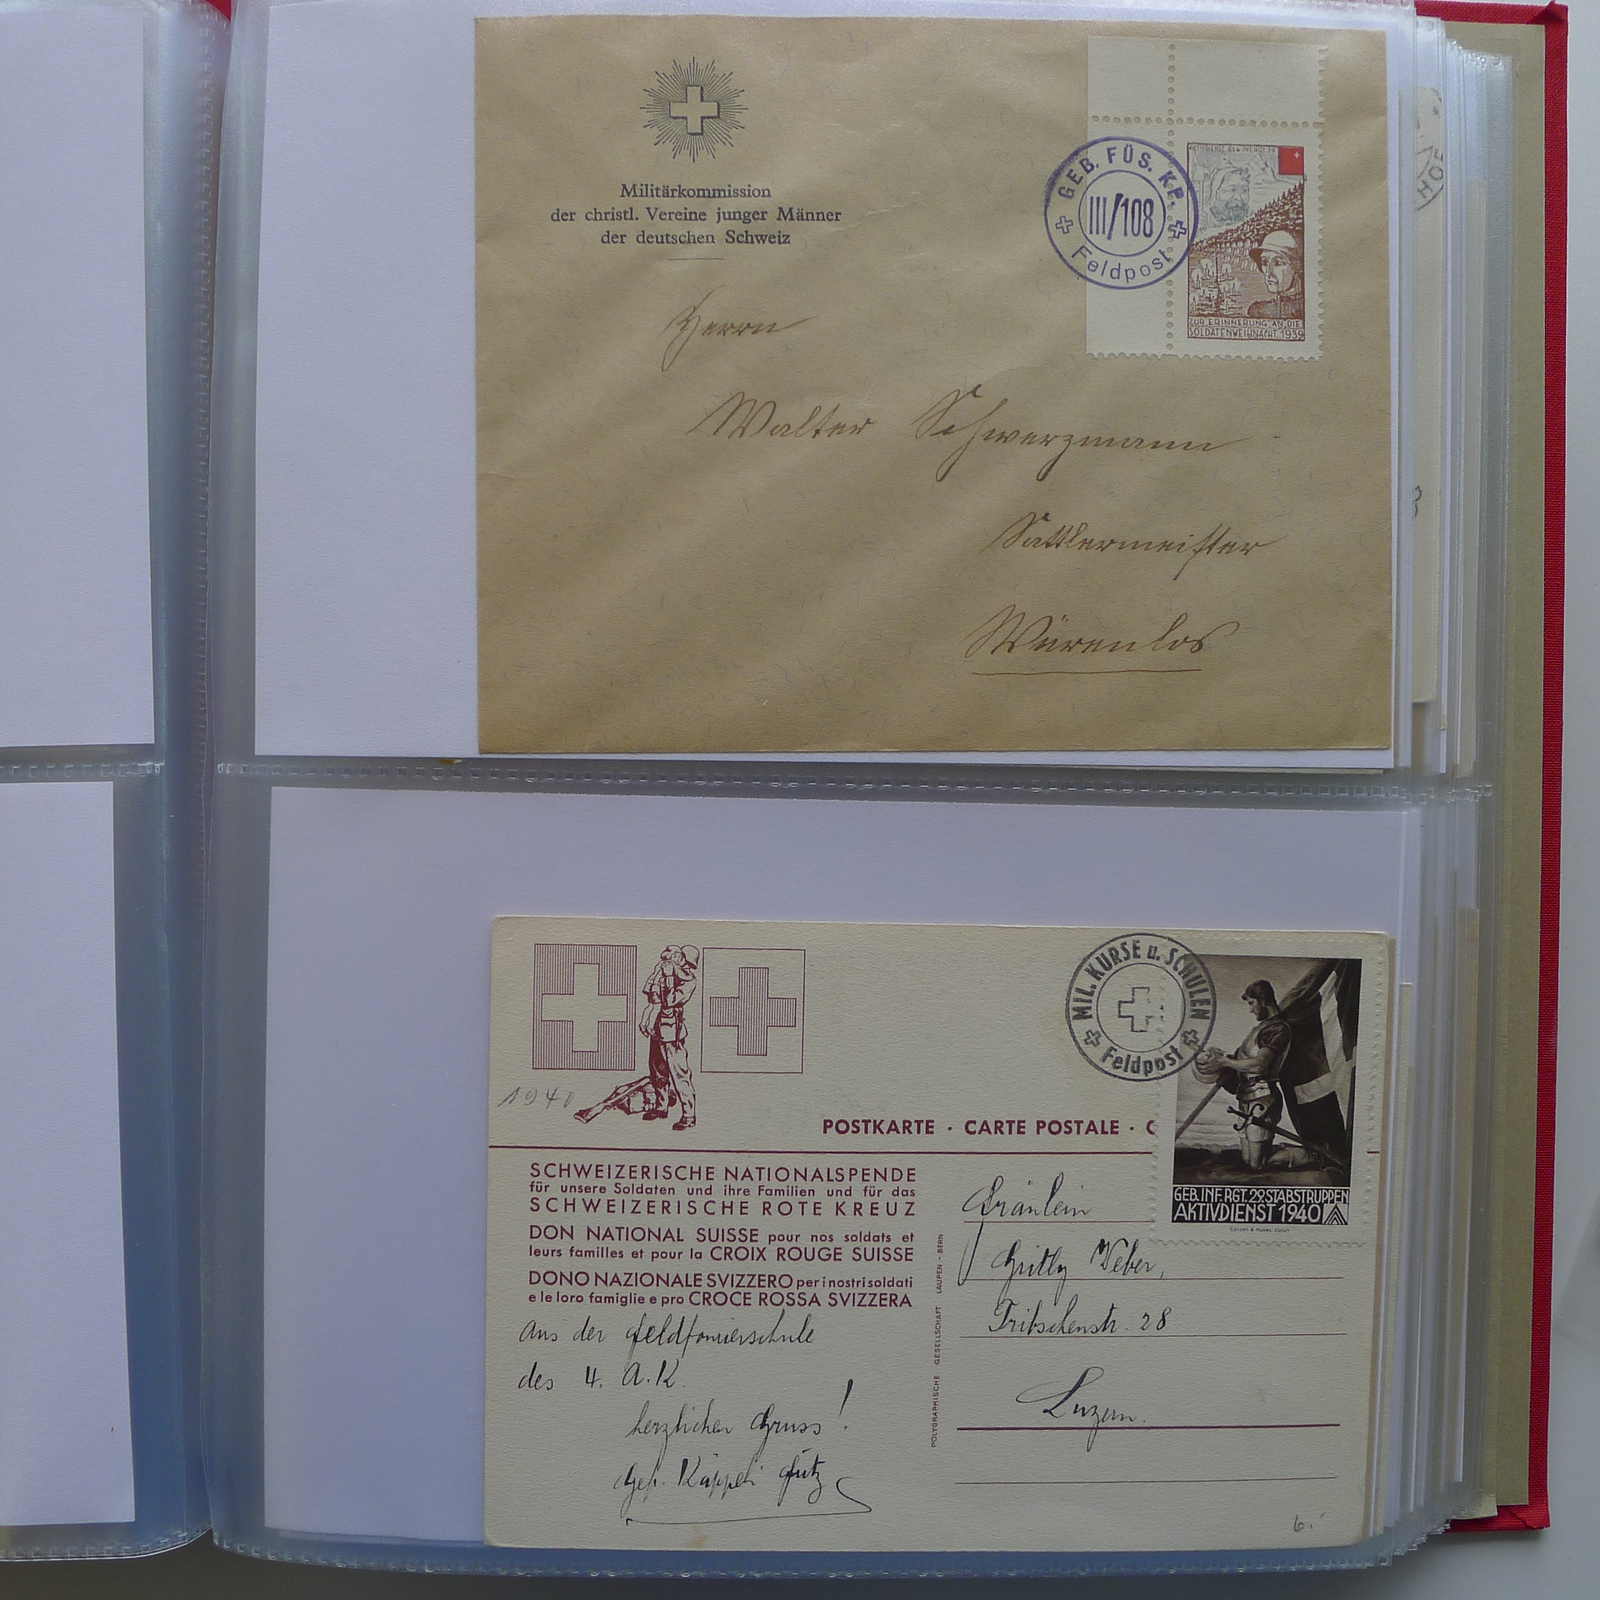 Militärkommission
der christl. Vereine junger Männer
der deutschen Schweiz
GEB. FÜS. KP.
III/108
Feldpost
ZUR ERINNERUNG AN DIE
SOLDATENWEIHNACHT 1939
Herrn
Walter Schwerzmann
Sattlermeister
Würenlos
HOF
1940
MIL. KURSE u. SCHULEN
Feldpost
POSTKARTE · CARTE POSTALE · C
GEB. INF. RGT. 29 STABSTRUPPEN
AKTIVDIENST 1940
SCHWEIZERISCHE NATIONALSPENDE
für unsere Soldaten und ihre Familien und für das
SCHWEIZERISCHE ROTE KREUZ
DON NATIONAL SUISSE pour nos soldats et
leurs familles et pour la CROIX ROUGE SUISSE
DONO NAZIONALE SVIZZERO per i nostri soldati
e le loro famiglie e pro CROCE ROSSA SVIZZERA
Aus der
des 4. A.K.
herzlichen Gruss!
Käppeli
POLYGRAPHISCHE GESELLSCHAFT LAUPEN - BERN
Fräulein
Gritly Weber,
Tribschenstr. 28
Luzern.
6.-